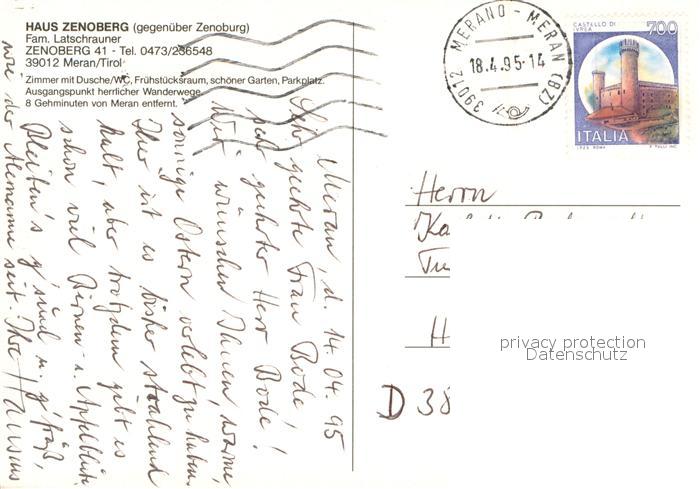 HAUS ZENOBERG (gegenüber Zenoburg)
Fam. Latschrauner
ZENOBERG 41 - Tel. 0473/236548
39012 Meran/Tirol
Zimmer mit Dusche/WC, Frühstücksraum, schöner Garten, Parkplatz.
Ausgangspunkt herrlicher Wanderwege.
8 Gehminuten von Meran entfernt.
39012 MERANO - MERAN (BZ)
18.4.95-14
CASTELLO DI IVREA
700
ITALIA
Meran, d. 14.04.95
Sehr geehrte Frau Bode,
sehr geehrter Herr Bode!
Wir wünschen Ihnen, warme,
sonnige Ostern verlebt zu haben.
Hier ist es bisher strahlend
kalt, aber trotzdem gibt es
schon viel Birnen- u. Apfelblüte.
Bleiben's g'sund u.
wie der Alemanne seit. Ihre
Herrn
H
D 38
privacy protection
Datenschutz